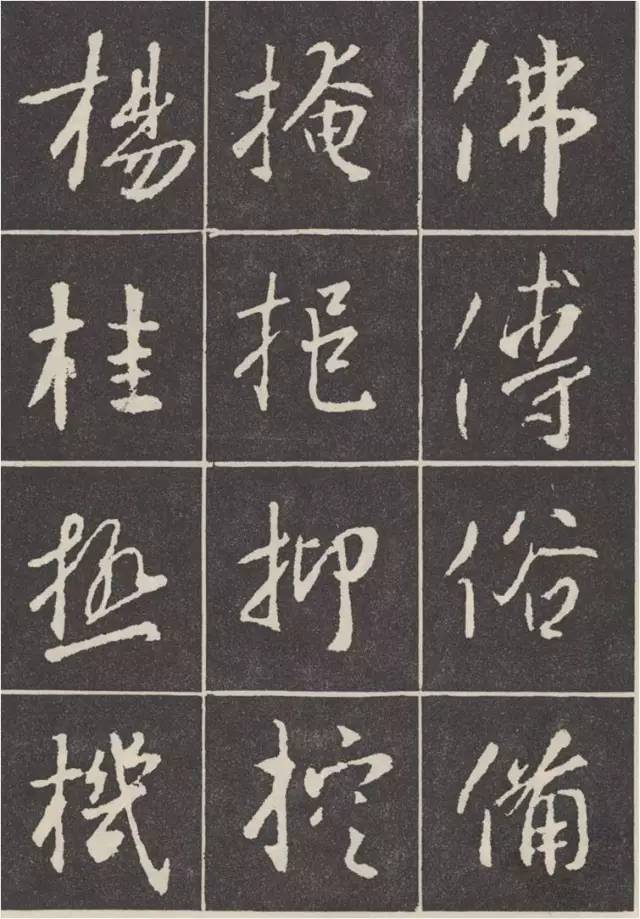 佛傅俗備
掩挹抑控
楊桂極機